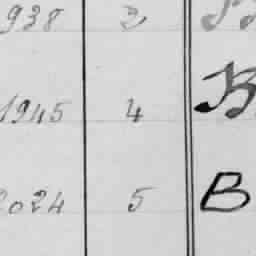 938 2
1945 4 B
2024 5 B